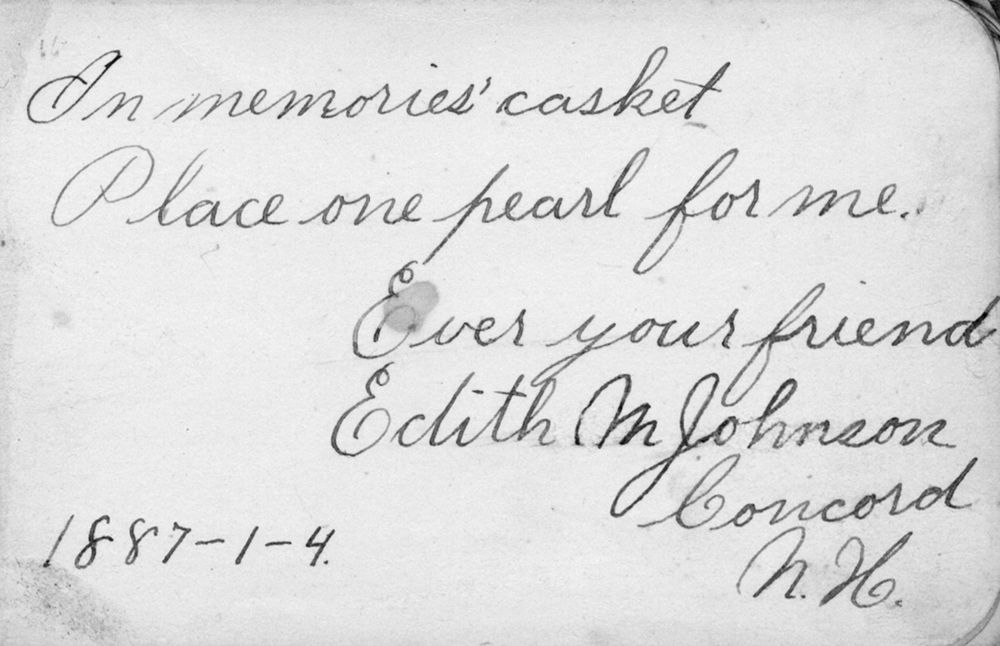 In memories' casket
Place one pearl for me.
Ever your friend
Edith M Johnson
Concord
N.H.
1887-1-4.